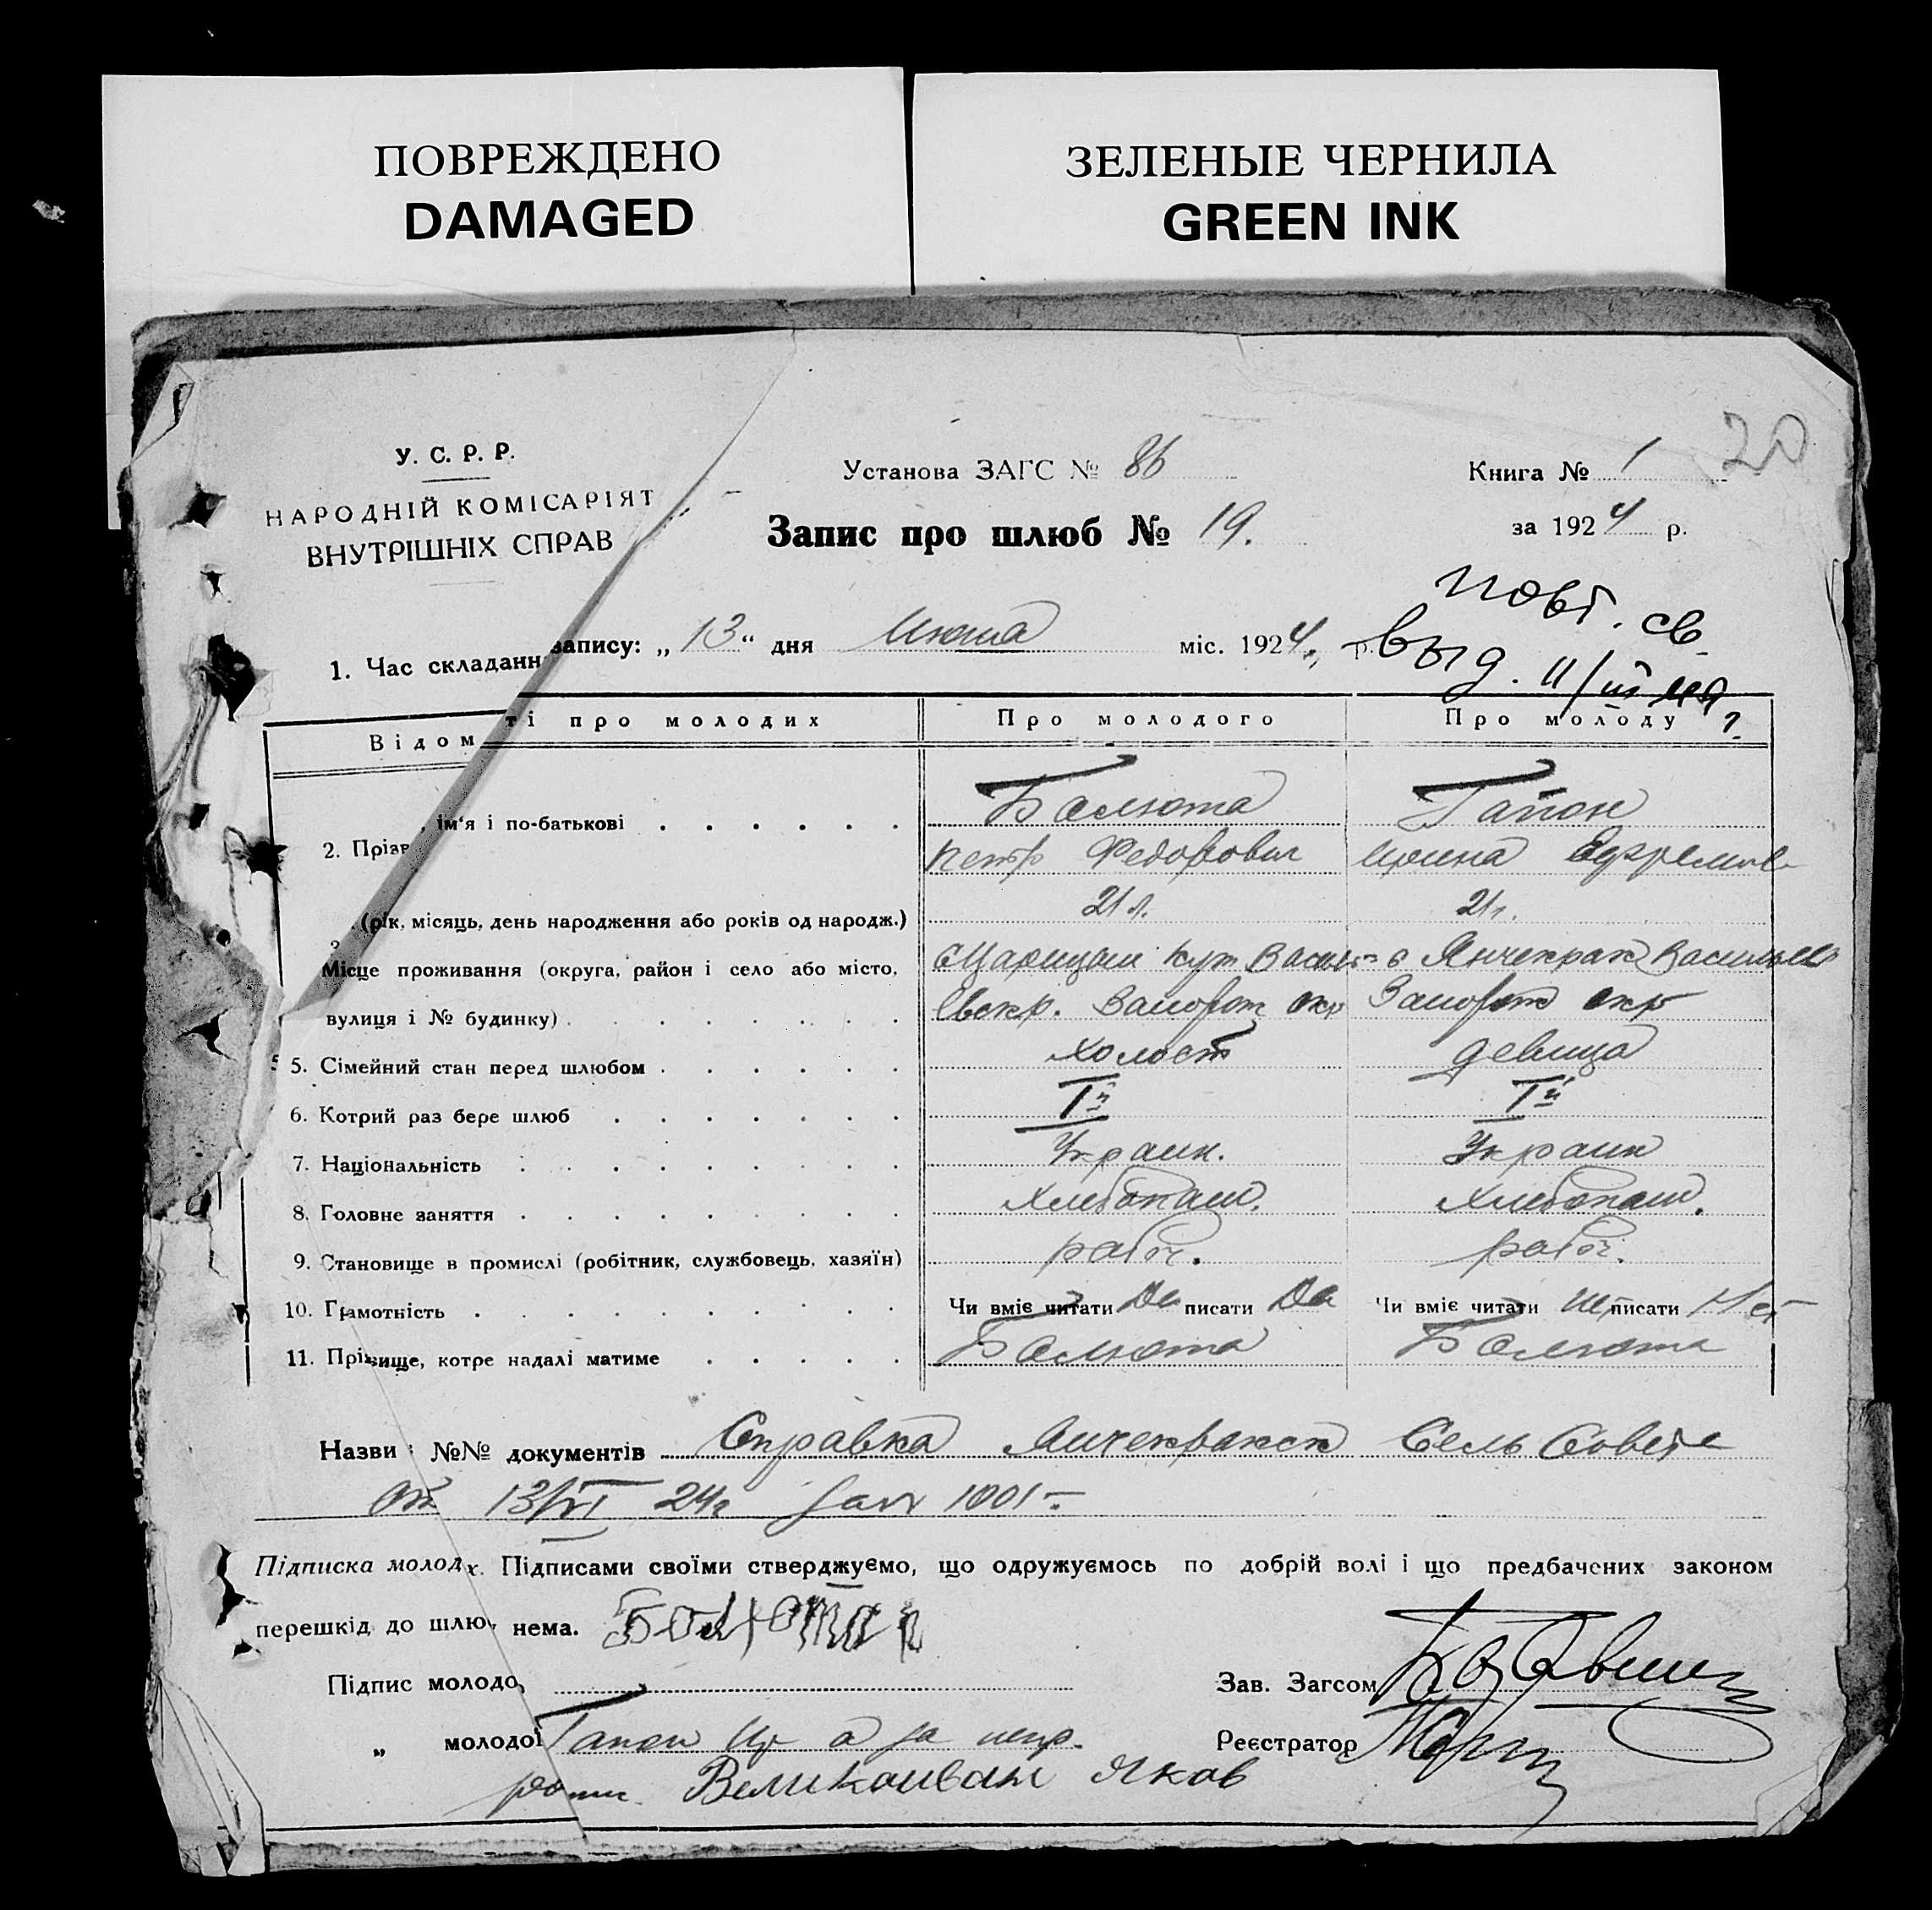 ПОВРЕЖДЕНО
DAMAGED
ЗЕЛЕНЫЕ ЧЕРНИЛА
GREEN INK
20
У. С. Р. Р.
НАРОДНІЙ КОМІСАРІЯТ
ВНУТРІШНІХ СПРАВ
Установа ЗАГС № 86
Книга № 1
Запис про шлюб № 19.
за 1924 р.
повт. св.
выд. 11/III
1. Час складанн запису: „ 13 “ дня Июня міс. 1924, р.
Відом ті про молодих
Про молодого
Про молоду
2. Прізв , ім'я і по-батькові . . . . . .
Балюта
Гапон
Петр Федорович
Ирина Ефремов
(рік, місяць, день народження або років од народж.)
21 л.
21 г.
Місце проживання (округа, район і село або місто,
с Царицын Кут Василь-
с Янчекрак Васильев
вулиця і № будинку) . . . . . . . .
евскр. Запорож окр
Запорож окр
5. Сімейний стан перед шлюбом . . . . . .
холост
девица
6. Котрий раз бере шлюб . . . . . . .
Iй
Iй
7. Національність . . . . . . . . .
Украин.
Украин
8. Головне заняття . . . . . . . . .
Хлебопаш.
Хлебопаш.
9. Становище в промислі (робітник, службовець, хазяїн)
рабоч.
рабоч.
10. Грамотність . . . . . . . . . .
Чи вміє читати Да писати Да
Чи вміє читати Нет писати Нет
11. Прізвище, котре надалі матиме . . . . .
Балюта
Балюта
Назви №№ документів Справка Янчекракск Сель Совета
от 13/VI 24г за № 1001 -
Підписка молод х. Підписами своїми стверджуємо, що одружуємось по добрій волі і що предбачених законом
перешкід до шлю, нема. Балюта п
Підпис молодо,
Зав. Загсом
„ молодої Гапон Ир а за негр.
Реєстратор
роспи. Великоиван Яков